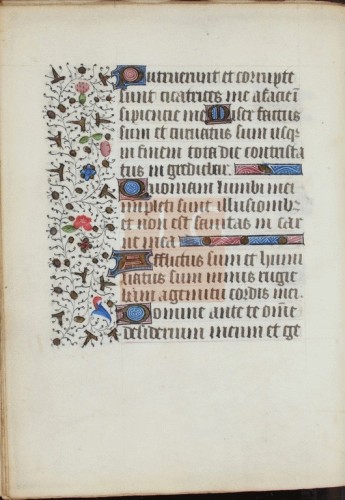 Putruerunt et corrupte
sunt cicatrices mee a facie i
sipientie mee Miser factus
sum et curuatus sum usq
in finem tota die contrista
tus ingrediebar
Quoniam lumbi mei
impleti sunt illusionibus
et non est sanitas in car
ne mea
Afflictus sum et humi
liatus sum nimis rugie
bam a gemitu cordis mei
Domine ante te ome
desiderium meum et ge